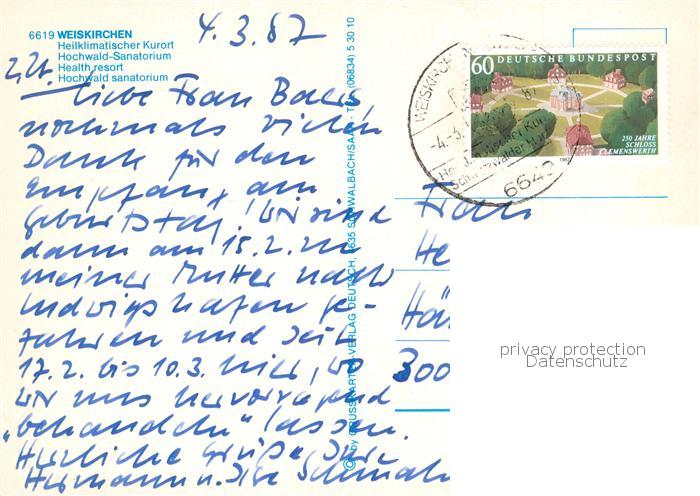 6619 WEISKIRCHEN
Heilklimatischer Kurort
Hochwald-Sanatorium
Health resort
Hochwald sanatorium
4.3.87
z.Zt.
Liebe Frau
nochmals vielen
Dank für den
Empfang am
Geburtstag! Wir sind
dann am 15.2. zu
meiner Mutter nach
Ludwigshafen ge-
fahren und seit
17.2. bis 10.3. hier, wo
wir uns hervorragend
„behandeln" lassen.
Herzliche Grüße Ihre
Hermann u. Ilse
© by KRUSSKARTEN-VERLAG DEUTSCH, 6635 SCHWALBACH/SAAR · TEL. (06834) 5 30 10
60 DEUTSCHE BUNDESPOST
250 JAHRE
SCHLOSS
CLEMENSWERTH
1987
WEISKIRCHEN
-4.-3.
Schwarzwälder Hochwald
6649
Frau
He
Hän
300
privacy protection
Datenschutz